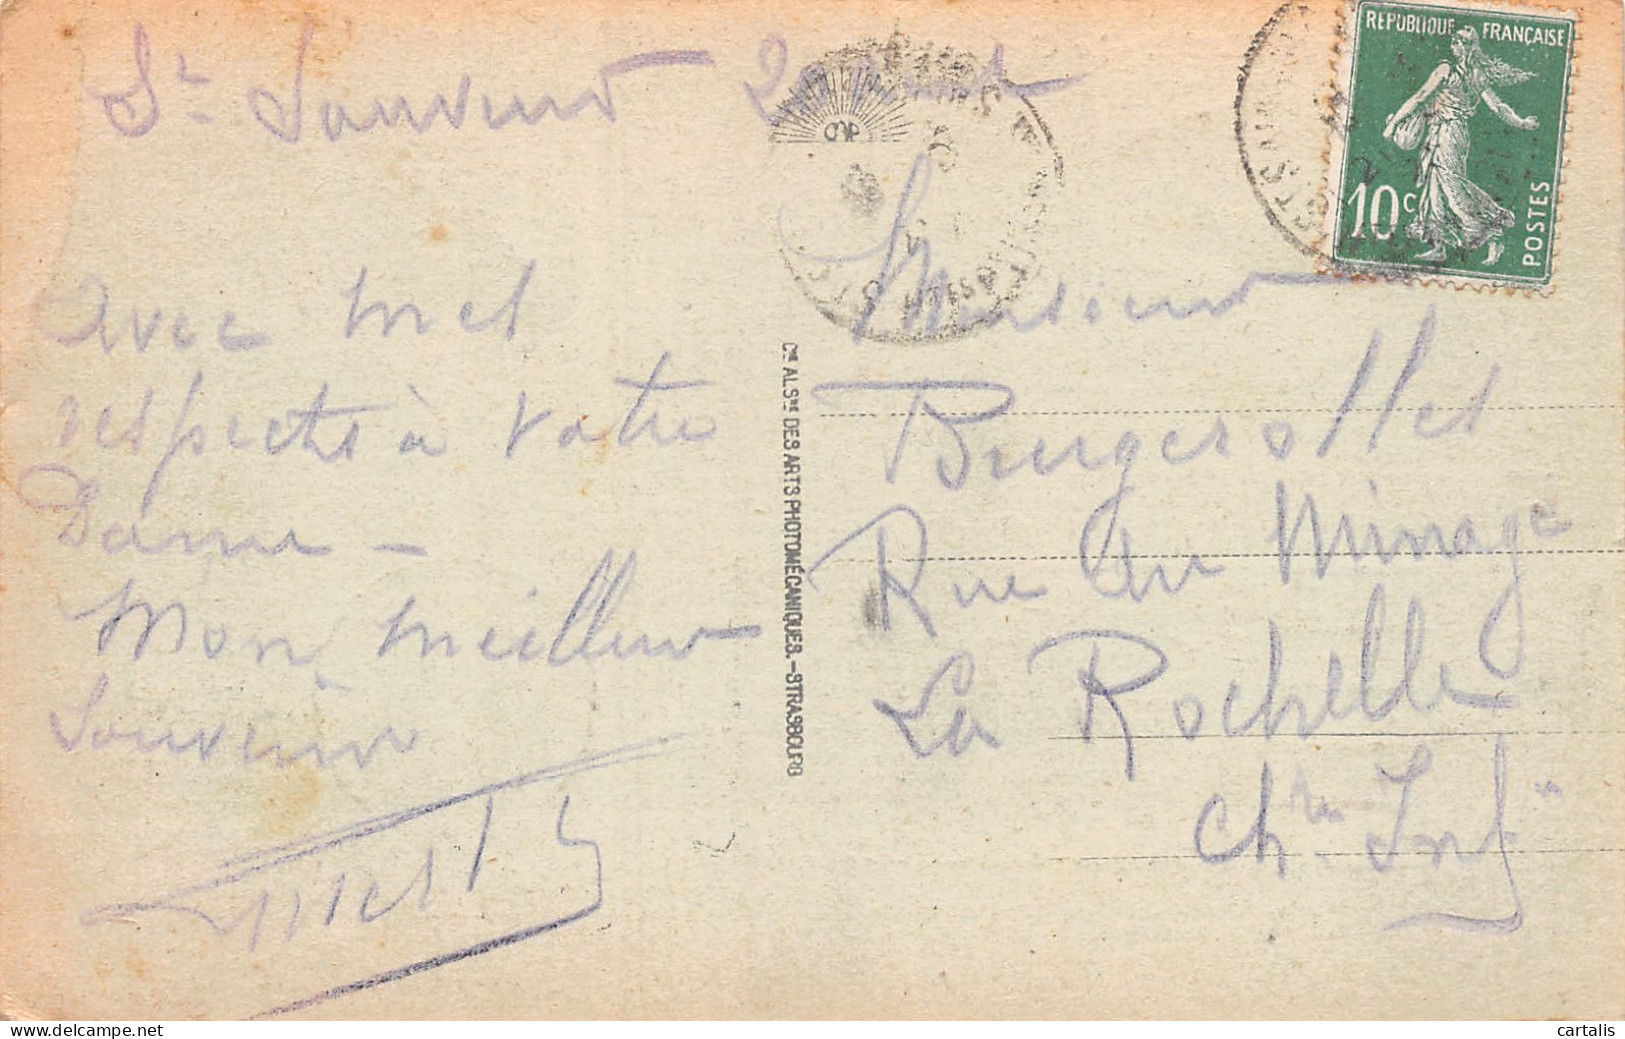 St Sauveur 2
avec mes
respects à votre
Dame –
Mon meilleur
Souvenir
Monsieur
Bergerolles
Rue du Minage
La Rochelle
Chte Infre
RÉPUBLIQUE FRANÇAISE
10c
POSTES
Cie ALSne DES ARTS PHOTOMÉCANIQUES.–STRASBOURG
delcampe.net
cartalis